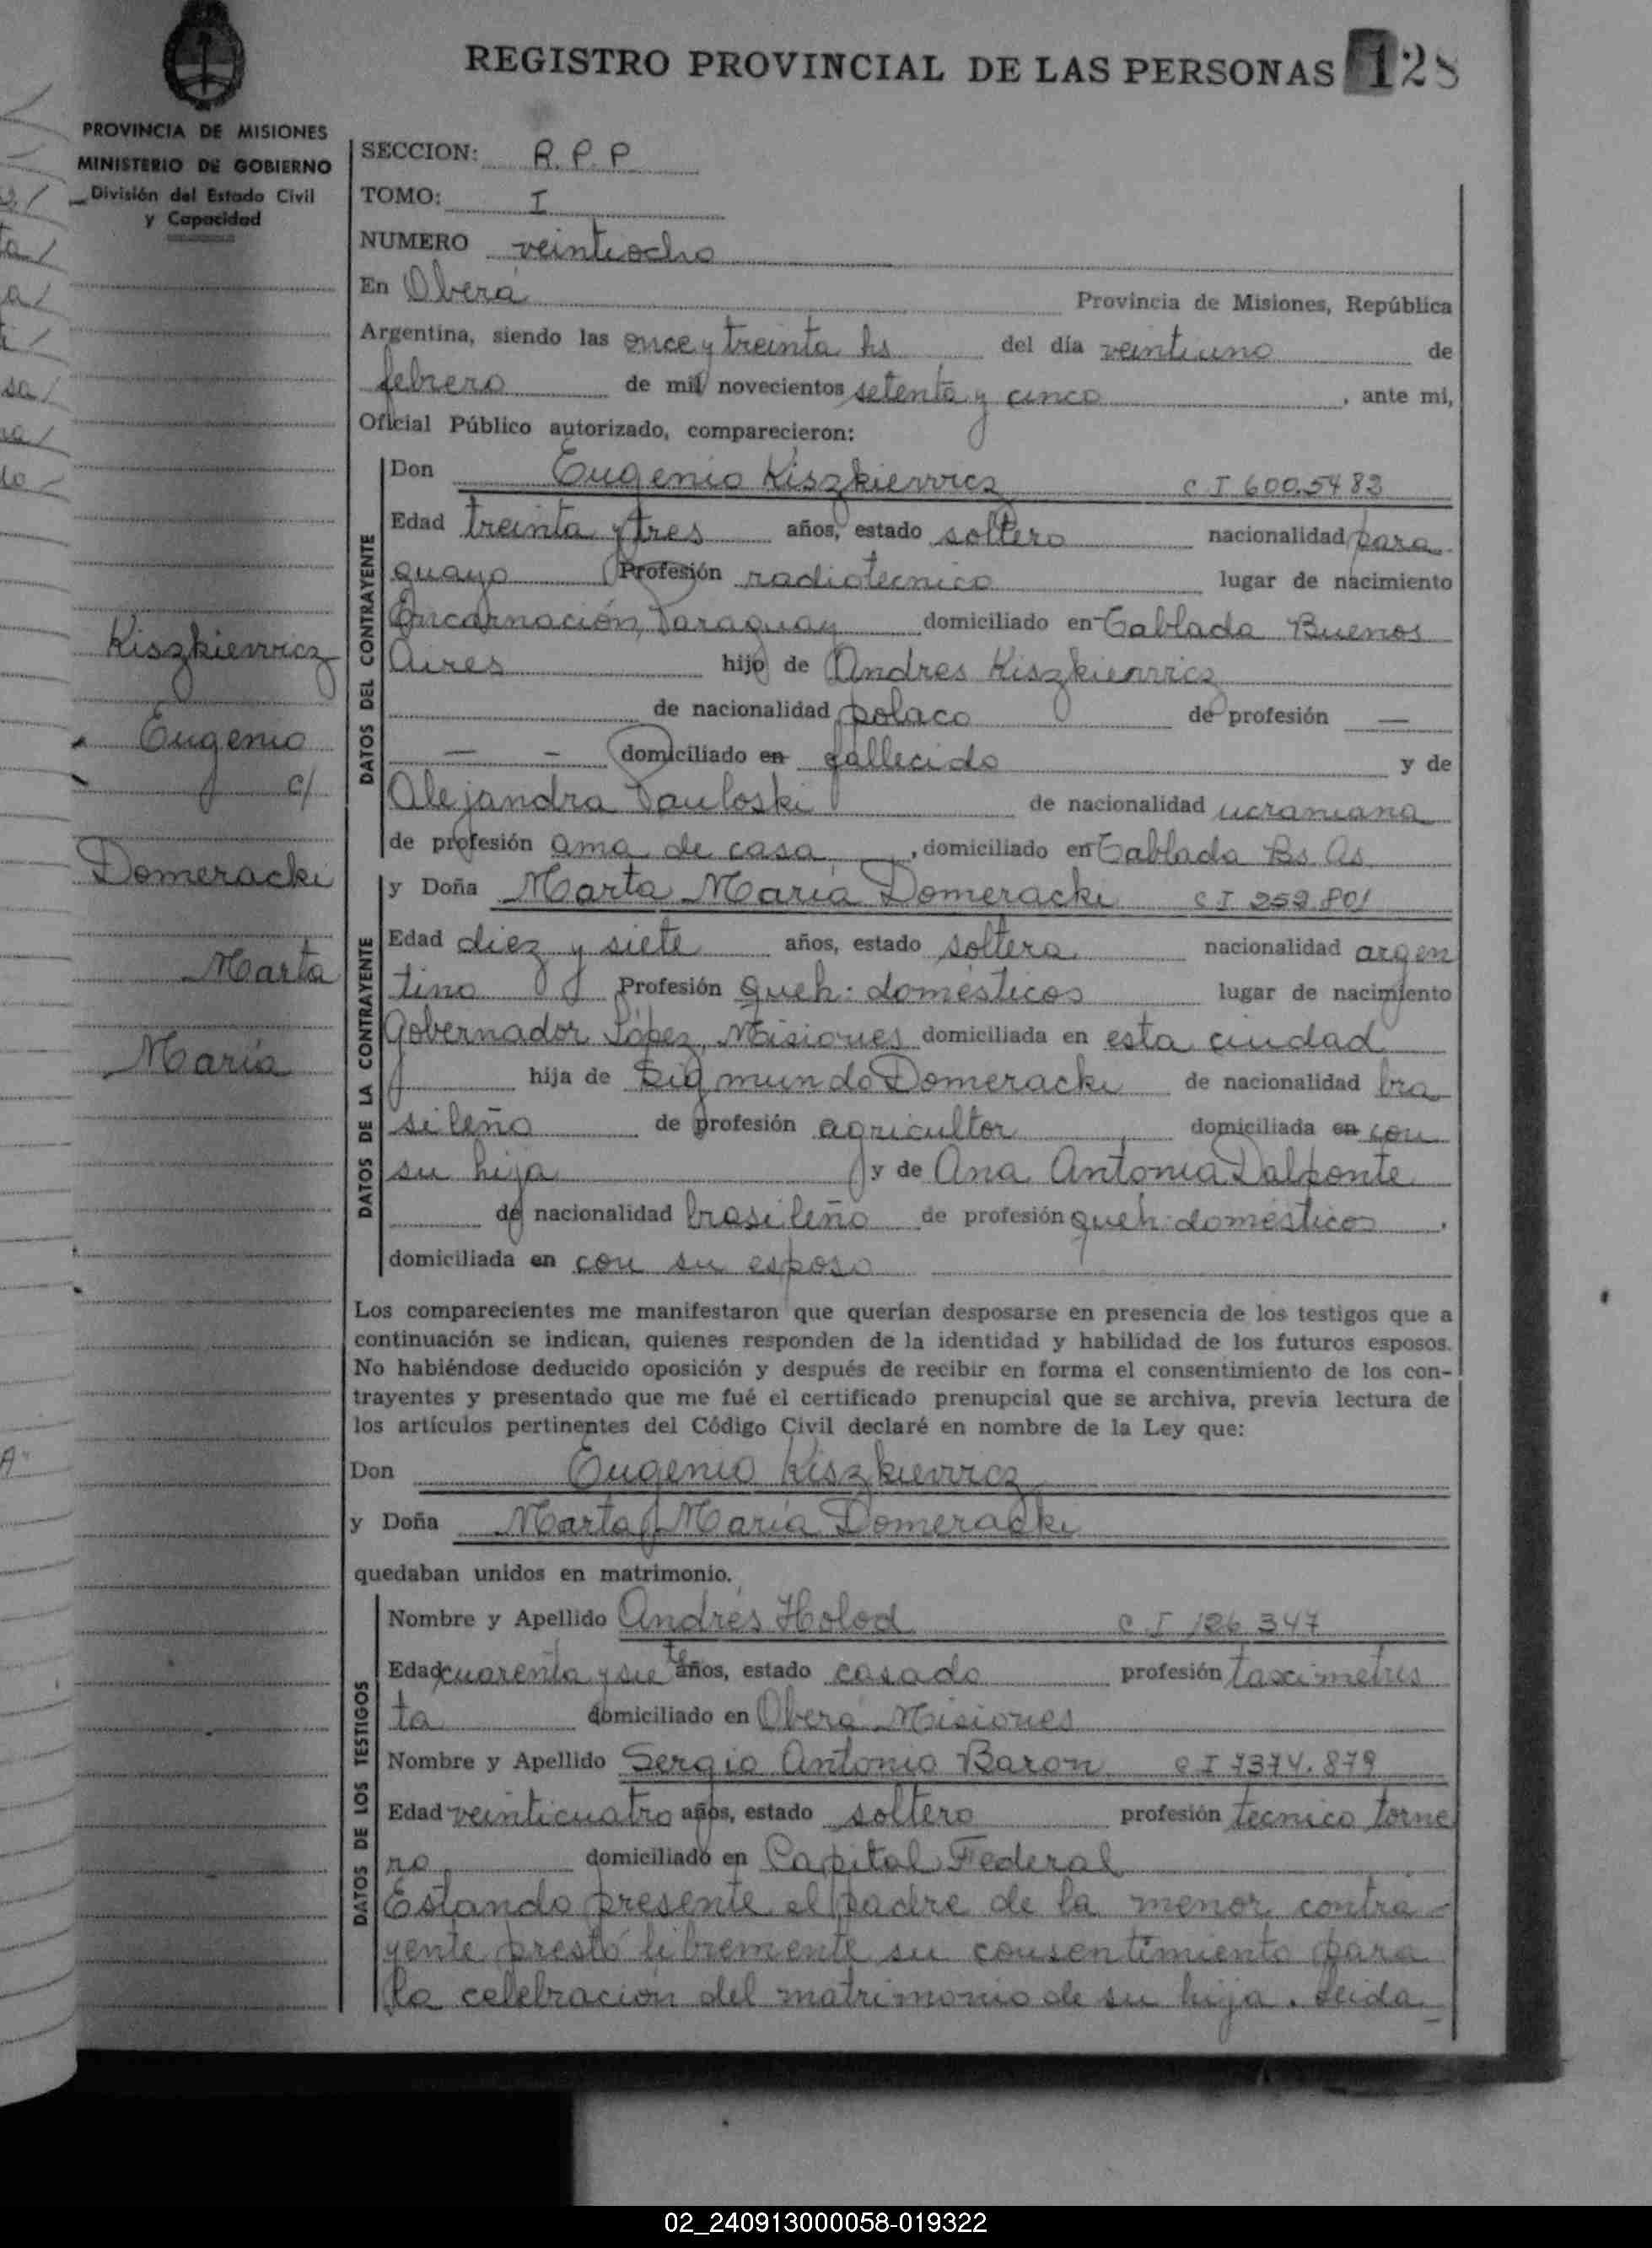 REGISTRO PROVINCIAL DE LAS PERSONAS 128
PROVINCIA DE MISIONES
MINISTERIO DE GOBIERNO
División del Estado Civil
y Capacidad
SECCION: R.P.P
TOMO: I
NUMERO veintiocho
En Oberá Provincia de Misiones, República
Argentina, siendo las once y treinta hs del día veintiuno de
febrero de mil novecientos setenta y cinco, ante mi,
Oficial Público autorizado, comparecieron:
DATOS DEL CONTRAYENTE
Don Eugenio Kiszkiewicz C I 600.5483
Edad treinta y tres años, estado soltero nacionalidad para
guayo Profesión radiotecnico lugar de nacimiento
Encarnación, Paraguay domiciliado en Tablada Buenos
Aires hijo de Andres Kiszkiewicz
de nacionalidad polaco de profesión —
— - domiciliado en fallecido y de
Alejandra Pauloski de nacionalidad ucraniana
de profesión ama de casa, domiciliado en Tablada Bs. As.
Kiszkiewicz
Eugenio
c/
Domeracki
Marta
María
DATOS DE LA CONTRAYENTE
y Doña Marta María Domeracki C I 252.801
Edad diez y siete años, estado soltera nacionalidad argen
tino Profesión queh: domésticos lugar de nacimiento
Gobernador López, Misiones domiciliada en esta ciudad
hija de Sigmundo Domeracki de nacionalidad bra
sileño de profesión agricultor domiciliada en con
su hija y de Ana Antonia Dalponte
de nacionalidad brasileño de profesión queh: domésticos,
domiciliada en con su esposo
Los comparecientes me manifestaron que querían desposarse en presencia de los testigos que a
continuación se indican, quienes responden de la identidad y habilidad de los futuros esposos.
No habiéndose deducido oposición y después de recibir en forma el consentimiento de los con-
trayentes y presentado que me fué el certificado prenupcial que se archiva, previa lectura de
los artículos pertinentes del Código Civil declaré en nombre de la Ley que:
Don Eugenio Kiszkiewicz
y Doña Marta María Domeracki
quedaban unidos en matrimonio.
DATOS DE LOS TESTIGOS
Nombre y Apellido Andrés Holod C I 126 347
Edad cuarenta y siete años, estado casado profesión taximetris
ta domiciliado en Oberá Misiones
Nombre y Apellido Sergio Antonio Baron C I 7374.879
Edad veinticuatro años, estado soltero profesión tecnico torne
ro domiciliado en Capital Federal
Estando presente el padre de la menor contra-
yente prestó libremente su consentimiento para
la celebración del matrimonio de su hija. Leida
02_240913000058-019322